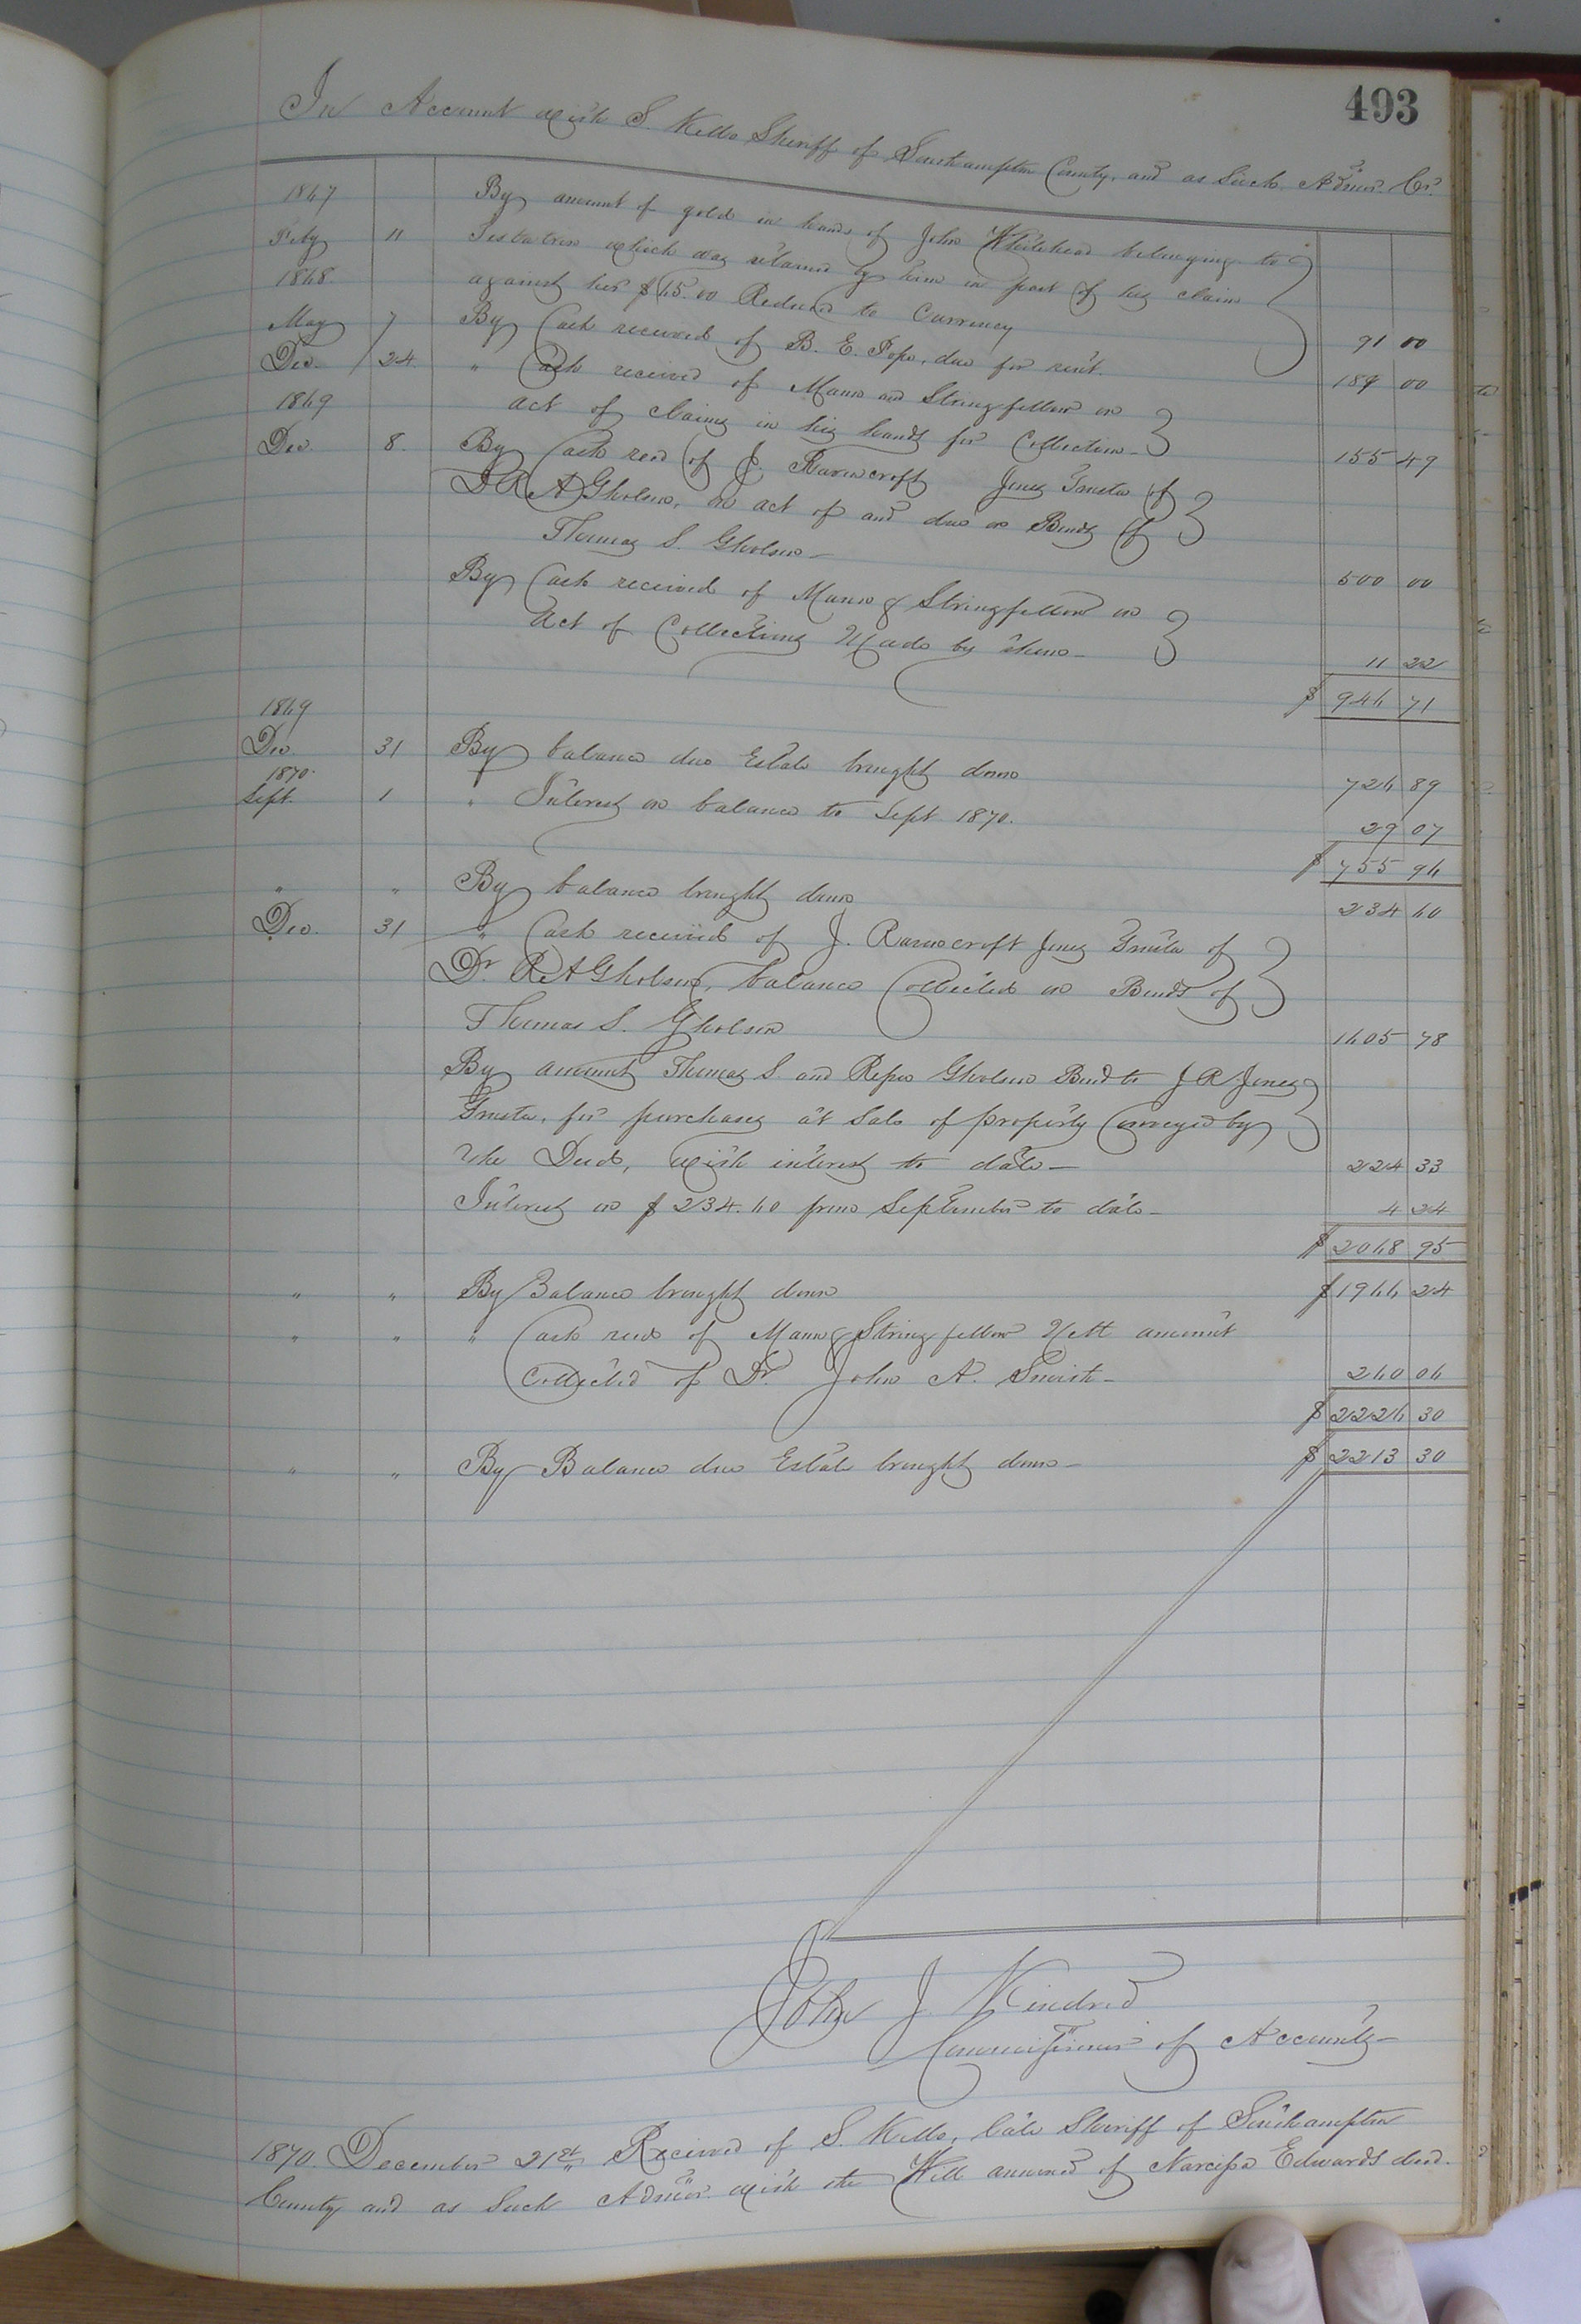 493
In Account with S. Kello Sheriff of Southampton County, and as Such Admor. Cr.
1867 By amount of gold in hands of John Whitehead belonging to
Feby 11 Testatrix which was retained by him in part of his claim
1868 against her $65.00 Reduced to Currency 91 00
May 7 By Cash received of B. E. Pope, due for rent. 189 00
Dec. 24 " Cash received of Mann and Stringfellow on
1869 act of claims in his hands for Collection 155 49
Dec. 8. By Cash recd of J. Ravenscroft Jones Trustee of
Dr R A Gholson, on act of and due on Bonds of
Thomas S. Gholson 500 00
By Cash received of Mann & Stringfellow on
Act of Collections Made by them 11 22
$ 946 71
1869
Dec. 31 By balance due Estate brought down 726 89
1870.
Sept. 1 " Interest on balance to Sept 1870. 29 07
$ 755 96
" " By balance brought down 234 60
Dec. 31 " Cash received of J. Ravenscroft Jones Trustee of
Dr. R A Gholson, balance Collected on Bonds of
Thomas S. Gholson 1605 78
By amount Thomas S. and Gholson Bond to J R Jones
Trustee, for purchases at Sale of property Conveyed by
the Deed, with interest to date 224 33
Interest on $234.60 from September to date 4 24
$ 2068 95
" " By Balance brought down $ 1966 24
" " " Cash recd of Mann & Stringfellow Nett amount
Collected of Dr. John A. Smith 260 06
$ 2226 30
" " By Balance due Estate brought down $ 2213 30
John J. Kindred
Commissioner of Accounts
1870. December 21st, Received of S. Kello, late Sheriff of Southampton
County and as Such Admor. with the Will annexed of Narcissa Edwards decd.